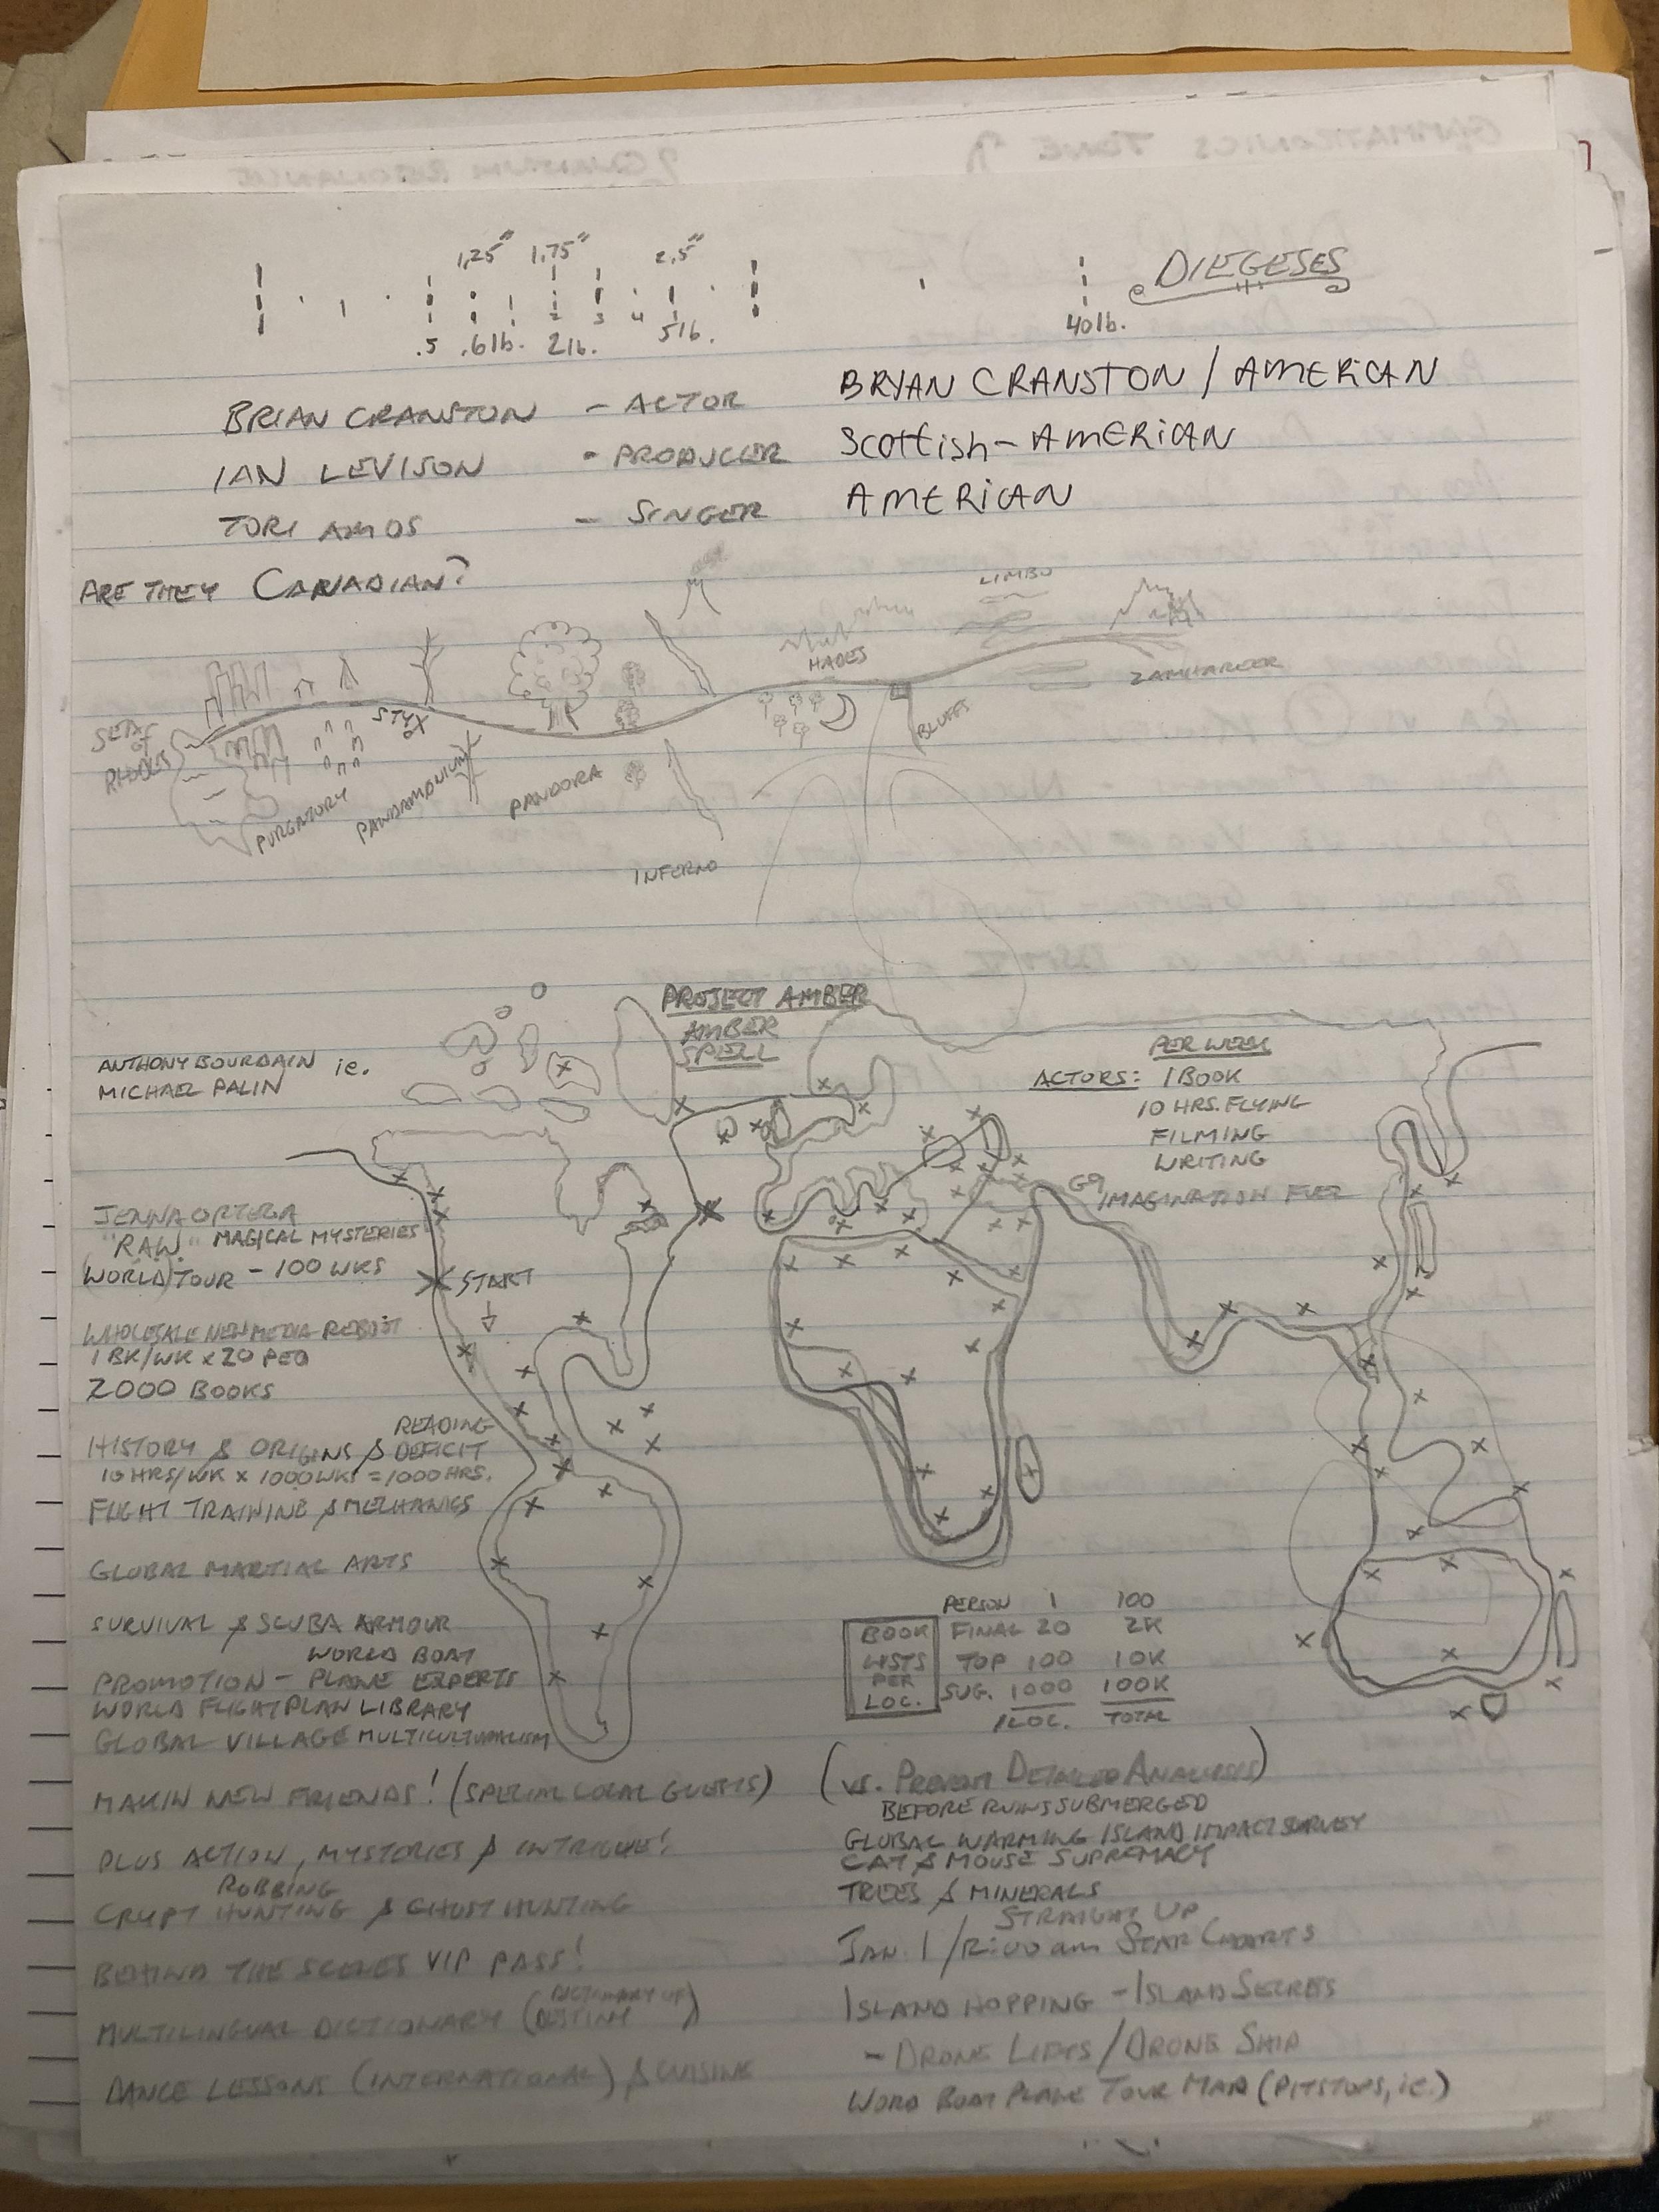 1.25" 1.75" 2.5"
DIEGESES
2 3 4
.5 .6 lb. 2 lb. 5 lb. 40 lb.
BRIAN CRANSTON - ACTOR BRYAN CRANSTON / AMERICAN
IAN LEVISON - PRODUCER Scottish-AMERICAN
TORI AMOS - SINGER AMERICAN
ARE THEY CANADIAN?
LIMBO
HADES
ZAMHAREER
STYX
SEAS OF RHODES
BLUFFS
PURGATORY
PANDAMONIUM
PANDORA
INFERNO
PROJECT AMBER
AMBER
SPELL
ANTHONY BOURDAIN ie.
MICHAEL PALIN
PER WEEK
ACTORS: 1 BOOK
10 HRS. FLYING
FILMING
WRITING
IMAGINATION FUEL
JENNA ORTEGA
"RAW" MAGICAL MYSTERIES
WORLD TOUR - 100 WKS
START
WHOLESALE NEW MEDIA REBOOT
1 BK/WK x 20 PEO
2000 BOOKS
READING
HISTORY & ORIGINS & DEFICIT
10 HRS/WK x 1000 WKS = 1000 HRS.
FLIGHT TRAINING & MECHANICS
GLOBAL MARTIAL ARTS
SURVIVAL & SCUBA ARMOUR
WORLD BOAT
PROMOTION - PLANE EXPERTS
WORLD FLIGHT PLAN LIBRARY
GLOBAL VILLAGE MULTICULTURALISM
PERSON 1 100
BOOK FINAL 20 2K
LISTS TOP 100 10K
PER
LOC. SUG. 1000 100K
1 LOC. TOTAL
MAKIN NEW FRIENDS! (SPECIAL LOCAL GUESTS)
(vs. PREVENT DETAILED ANALYSES)
BEFORE RUINS SUBMERGED
GLOBAL WARMING ISLAND IMPACT SURVEY
PLUS ACTION, MYSTERIES & INTRIGUE!
CAT & MOUSE SUPREMACY
ROBBING
CRYPT HUNTING & GHOST HUNTING
TREES & MINERALS
STRAIGHT UP
JAN. 1 / 12:00 am STAR CHARTS
BEHIND THE SCENES VIP PASS!
ISLAND HOPPING - ISLAND SECRETS
DICTIONARY OF
MULTILINGUAL DICTIONARY (DESTINY)
- DRONE LIFTS / DRONE SHIP
DANCE LESSONS (INTERNATIONAL) & CUISINE
WORD BOAT PLANE TOUR MAP (PITSTOPS, ie.)